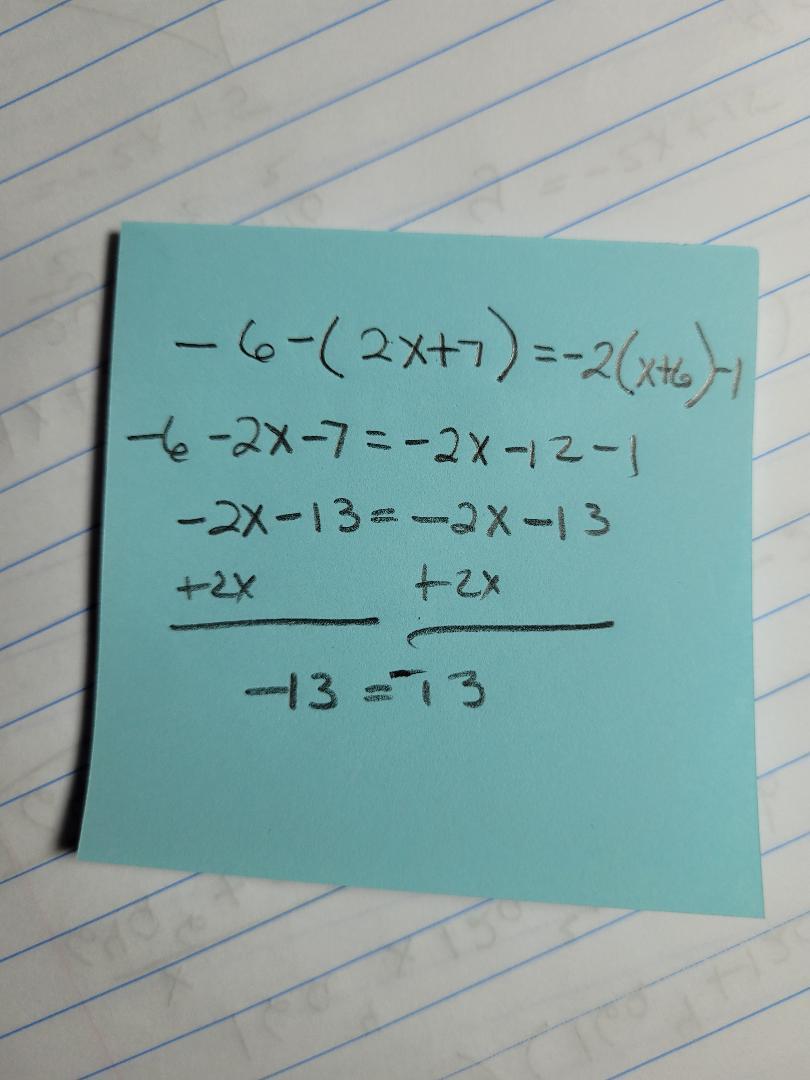 -6-(2x+7)=-2(x+6)-1
-6-2x-7=-2x-12-1
-2x-13=-2x-13
+2x +2x
-13=-13